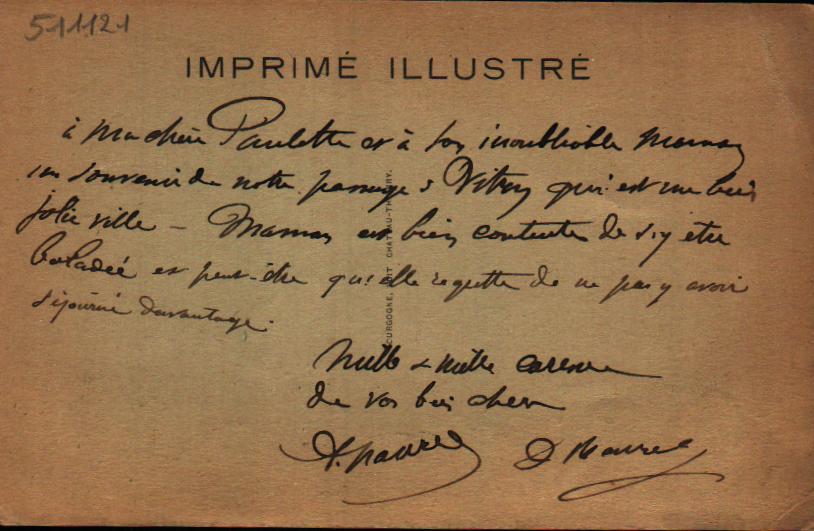 511121
IMPRIMÉ ILLUSTRÉ
à ma chère Paulette et à son inoubliable Maman
un souvenir de notre passage à Vitry qui est une bien
jolie ville – Maman est bien contente de s'y être
baladée et peut-être qu'elle regrette de ne pas y avoir
séjourné davantage.
Mille & mille caresses
de vos bien chers
BOURGOGNE, ÉDIT CHATEAU-THIERRY.